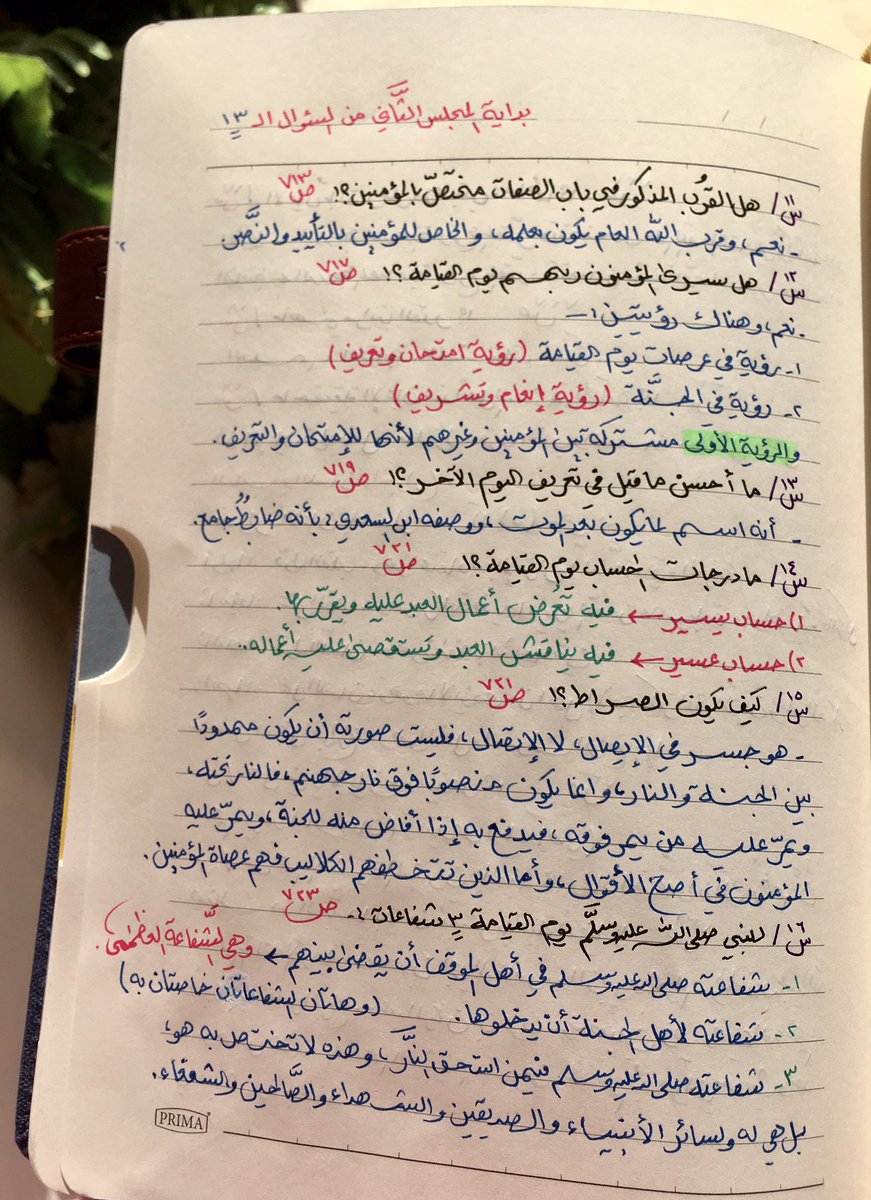 بداية المجلس الثَّاني من السؤال الـ ١٣
س١١/ هل القُرب المذكور في باب الصفات مختصّ بالمؤمنين؟! ص٧١٣
- نعم، وقرب الله العام يكون بعلمه، والخاص للمؤمنين بالتأييد والنَّصر.
س١٢/ هل سيرى المؤمنون ربهم يوم القيامة؟! ص٧١٧
- نعم، وهناك رؤيتين :-
١- رؤية في عرصات يوم القيامة (رؤية امتحان وتعريف)
٢- رؤية في الجنَّة (رؤية إنعام وتشريف)
والرؤية الأولى مشتركة بين المؤمنين وغيرهم لأنها للإمتحان والتعريف.
س١٣/ ما أحسن ما قيل في تعريف اليوم الآخر؟! ص٧١٩
- أنه اسم لما يكون بعد الموت، ووصفه ابن السعدي: بأنه ضابطٌ جامع.
س١٤/ ما درجات الحساب يوم القيامة؟! ص٧٢١
١) حساب يسير ← فيه تُعرض أعمال العبد عليه ويقرّ بها.
٢) حساب عسير ← فيه يناقش العبد وتستقصى عليه أعماله..
س١٥/ كيف يكون الصراط؟! ص٧٢١
- هو جسر في الإيصال، لا الإتصال، فليست صورته أن يكون ممدودًا
بين الجنة والنار، وانما يكون منصوبًا فوق نار جهنم، فالنار تحته،
ويمرّ عليه من يمر فوقه، فيدفع به إذا أفاض منه للجنة، ويمرّ عليه
المؤمنون في أصح الأقوال، وأما الذين تتخطفهم الكلاليب فهم عصاة المؤمنين.
س١٦/ للنبي صلى الله عليه وسلَّم يوم القيامة ٣ شفاعات :- ص٧٢٣
١- شفاعته صلى الله عليه وسلم في أهل الموقف أن يقضى بينهم ← وهي الشَّفاعة العظمى.
٢- شفاعته لأهل الجنة أن يدخلوها. (وهاتان الشفاعاتان خاصتان به)
٣- شفاعته صلى الله عليه وسلم فيمن استحق النَّار، وهذه لا تختص به هو،
بل هي له ولسائر الأنبياء والصديقين والشهداء والصَّالحين والشفعاء.
PRIMA